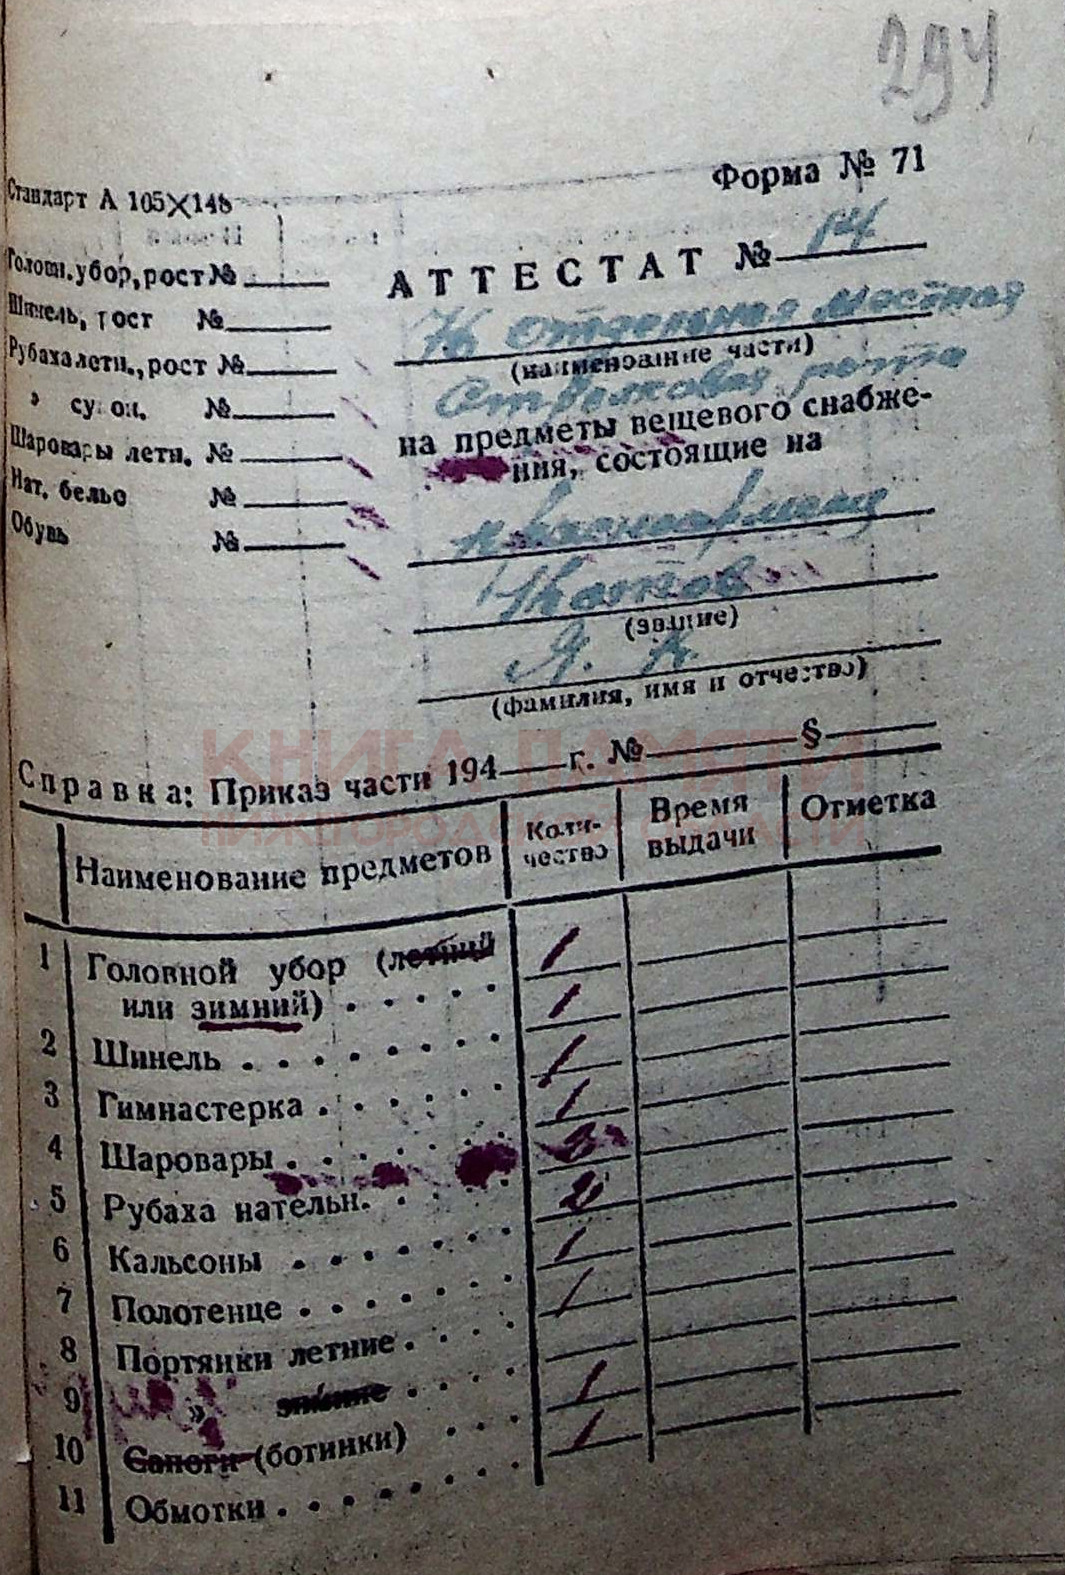 294
Форма № 71
Стандарт А 105×148
Головн. убор, рост №
Шинель, рост №
Рубаха летн., рост №
» сукон. №
Шаровары летн. №
Нат. белье №
Обувь №
АТТЕСТАТ № 14
отдельная местная
(наименование части)
Стрелковая рота
на предметы вещевого снабже-
ния, состоящие на
красноармеец
(звание)
Я. К.
(фамилия, имя и отчество)
КНИГА ПАМЯТИ
НИЖЕГОРОДСКОЙ ОБЛАСТИ
Справка: Приказ части 194 г. № §
Наименование предметов Коли-чество Время выдачи Отметка
1 Головной убор (летний
или зимний) . . . . . 1
2 Шинель . . . . . . . 1
3 Гимнастерка . . . . . 1
4 Шаровары . . . . . . 1
5 Рубаха нательн. . . . 2
6 Кальсоны . . . . . . 2
7 Полотенце . . . . . . 1
8 Портянки летние . . . 1
9 » зимние . . . .
10 Сапоги (ботинки) . . 1
11 Обмотки . . . . . . . 1